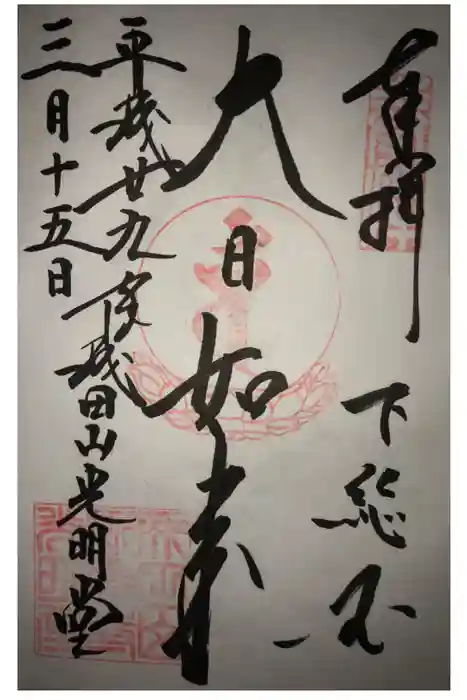 奉拝
下総国
大日如来
平成廿九年
三月十五日
成田山光明堂